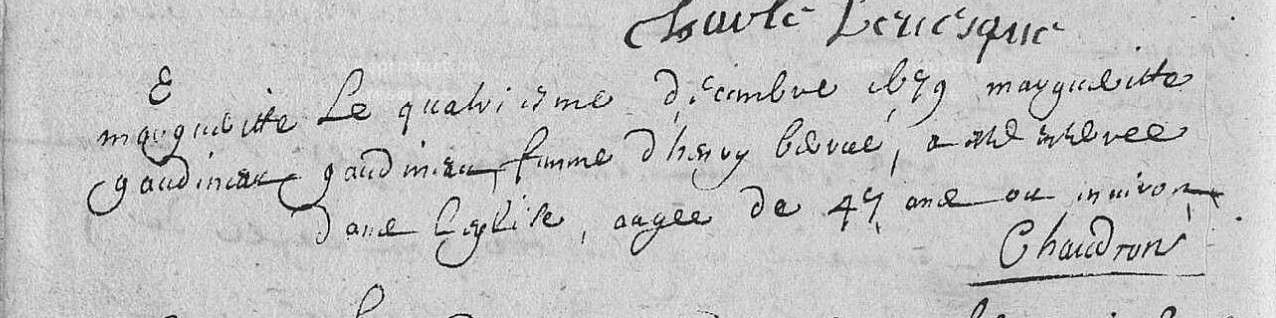 Charle Levesque
E
margueritte Le quatriesme décembre 1679 margueritte
gaudineau gaudineau, femme d'henry bervé, a esté enterree
dans l'eglise, aagee de 47 ans ou environ,
Chaudron